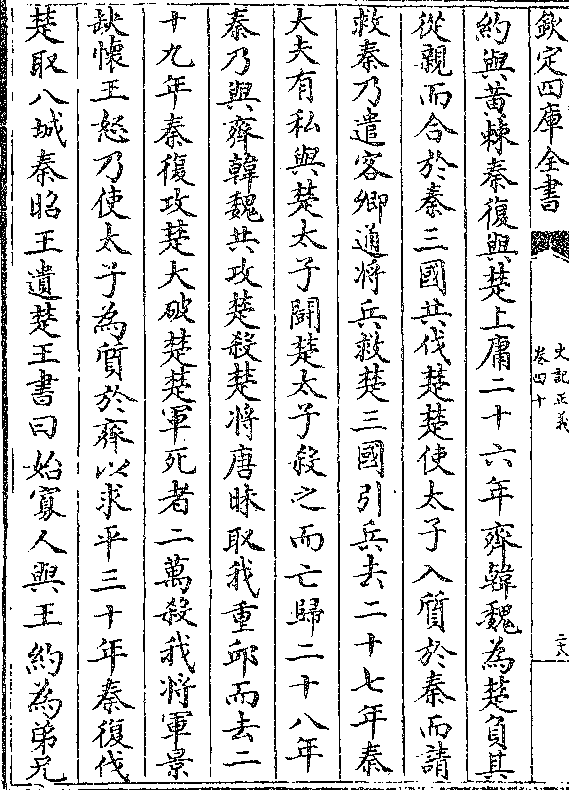 欽定四庫全書
史記正義
卷四十
二六
約與黃棘秦復與楚上庸二十六年齊韓魏為楚負其
從親而合於秦三國共伐楚楚使太子入質於秦而請
救秦乃遣客卿通將兵救楚三國引兵去二十七年秦
大夫有私與楚太子鬬楚太子殺之而亡歸二十八年
秦乃與齊韓魏共攻楚殺楚將唐昧取我重邱而去二
十九年秦復攻楚大破楚楚軍死者二萬殺我將軍景
缺懷王恐乃使太子為質於齊以求平三十年秦復伐
楚取八城秦昭王遺楚王書曰始寡人與王約為弟兄